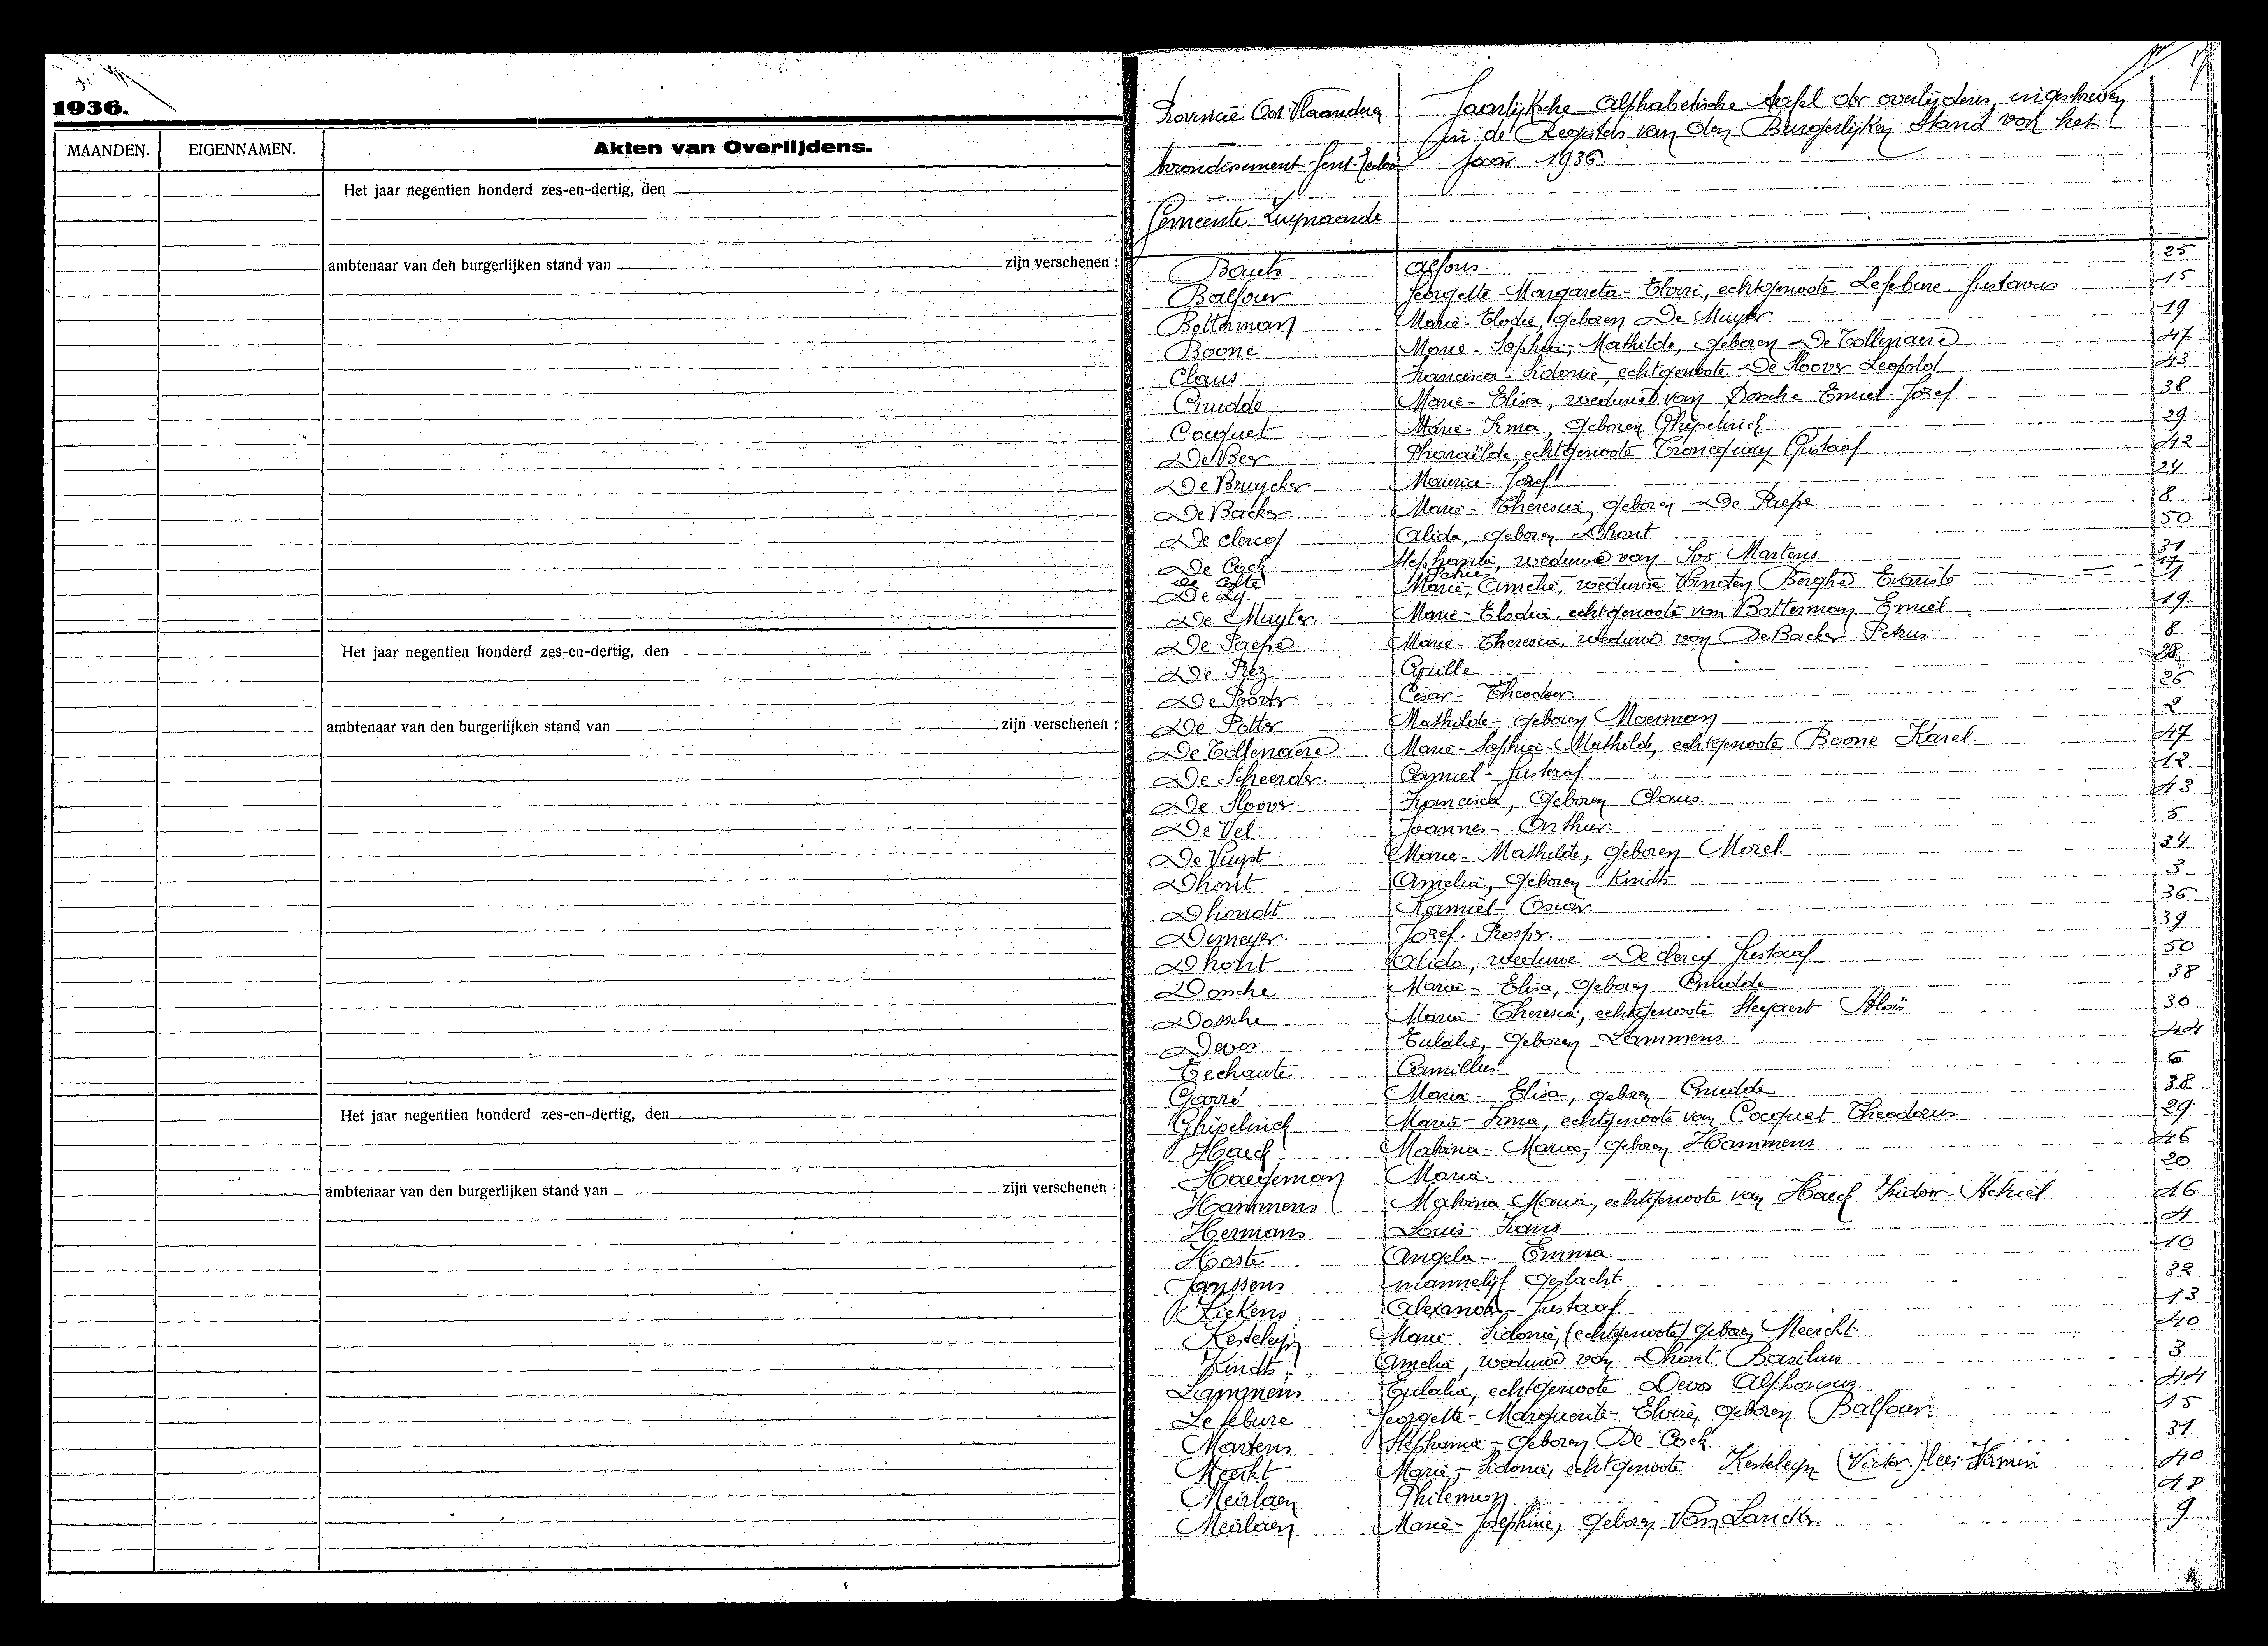 1936.
MAANDEN. EIGENNAMEN. Akten van Overlijdens.
Het jaar negentien honderd zes-en-dertig, den
ambtenaar van den burgerlijken stand van zijn verschenen :
Het jaar negentien honderd zes-en-dertig, den
ambtenaar van den burgerlijken stand van zijn verschenen :
Het jaar negentien honderd zes-en-dertig, den
ambtenaar van den burgerlijken stand van zijn verschenen :
Provincie Oost Vlaanderen
Arrondissement Gent-Eecloo
Gemeente
Jaarlijksche Alphabetische tafel der overlijdens, ingeschreven
in de Registers van den Burgerlijken Stand van het
jaar 1936.
Bauts Alfons. 25
Balfour Georgette-Margareta-Elvire, echtgenoote Lefebure Gustavus 15
Botterman Marie-Elodie, geboren De Muyter. 19
Boone Marie-Sophie-Mathilde, geboren De Tollenaere 47
Claus Francisca-Sidonie echtgenoote De Sloover Leopold 43
Cnudde Marie-Elisa, weduwe van Dossche Emiel-Jozef 38
Cocquet Marie-Irma, geboren Ghijselinck 29
De Bey Pharaïlde echtgenoote Troncquay Gustaaf 42
De Bruycker Maurice-Jozef 24
De Backer Marie-Theresia, geboren De Paepe 8
De clercq Alida, geboren Dhont 50
De Cock Stephanie, weduwe van Ivo Martens 31
De Colte 17
De Ly Marie-Amelie, weduwe Vineten Berghe Evariste
De Muyter. Marie-Elodie, echtgenoote van Botterman Emiel 19
De Paepe Marie-Theresia, weduwe van De Backer Petrus 8
De Prez Cyrille 28
De Poorter Cesar-Theodoor 26
De Potter Mathilde-geboren Moerman 2
De Tollenaere Marie-Sophie-Mathilde, echtgenoote Boone Karel 47
De Scheerder Camiel-Gustaaf 12
De Sloover Francisca, geboren Claus 43
De Vel Joannes-Arthur. 5
De Vuyst Marie-Mathilde, geboren Morel 34
Dhont Amelia, geboren Kindts 3
Dhondt Kamiel-Oscar 36
Demeyer Jozef-Prosper. 39
Dhont Alida, weduwe De clercq Gustaaf 50
Dossche Marie-Elisa, geboren Cnudde 38
Dossche Marie-Theresia, echtgenoote Steyaert Aloïs 30
Devos Eulalie, geboren Lammens 44
Eechaute Camillus. 6
Garré Maria-Elisa, geboren Cnudde 38
Ghijselinck Marie-Irma, echtgenoote van Cocquet Theodorus 29
Haeck Malvina-Maria, geboren Hammens 46
Haegeman Maria. 20
Hammens Malvina Maria, echtgenoote van Haeck Isidoor-Achiel 46
Hermans Louis-Frans 4
Hoste Angela-Emma. 10
Janssens mannelijk geslacht 32
Kiekens Alexander Gustaaf 13
Kesteleyn Marie Sidonie, (echtgenoote) geboren Meerckt. 40
Kindts Amelia, weduwe van Dhont Basilius 3
Lammens Eulalia, echtgenoote Devos Alphonsus. 44
Lefebure Georgette-Marguerite-Elvire, geboren Balfour. 15
Martens Stephanie-geboren De Cock 31
Meerkt Marie-Sidonie, echtgenoote Kesteleyn (Victor.) lees Firmin 40
Meirlaen Philemon 48
Meirlaen Marie-Josephine, geboren Van Lancker. 9